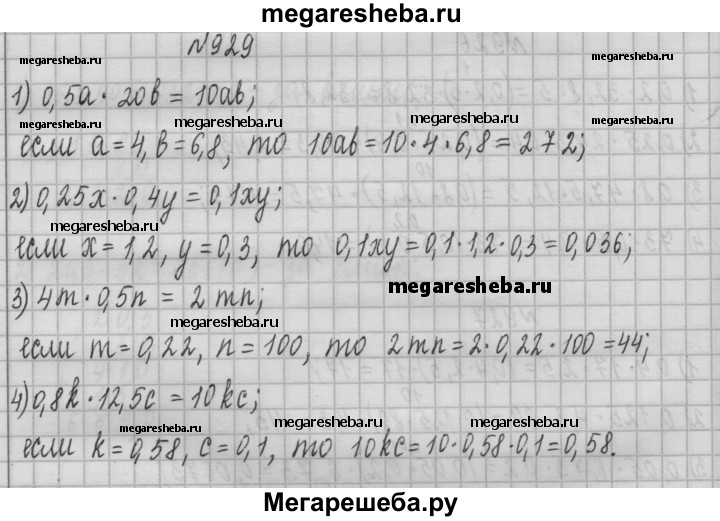 megaresheba.ru
№929
megaresheba.ru megaresheba.ru
1) 0,5a · 20b = 10ab;
megaresheba.ru megaresheba.ru megaresheba.ru
если a = 4, b = 6,8, то 10ab = 10 · 4 · 6,8 = 272;
2) 0,25x · 0,4y = 0,1xy;
megaresheba.ru
если x = 1,2, y = 0,3, то 0,1xy = 0,1 · 1,2 · 0,3 = 0,036;
megaresheba.ru
3) 4m · 0,5n = 2mn;
megaresheba.ru
если m = 0,22, n = 100, то 2mn = 2 · 0,22 · 100 = 44;
4) 0,8k · 12,5c = 10kc;
megaresheba.ru megaresheba.ru megaresheba.ru
если k = 0,58, c = 0,1, то 10kc = 10 · 0,58 · 0,1 = 0,58.
Мегарешеба.ру